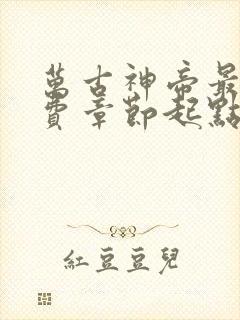 萬古神帝最
費章節起點
紅豆豆兒